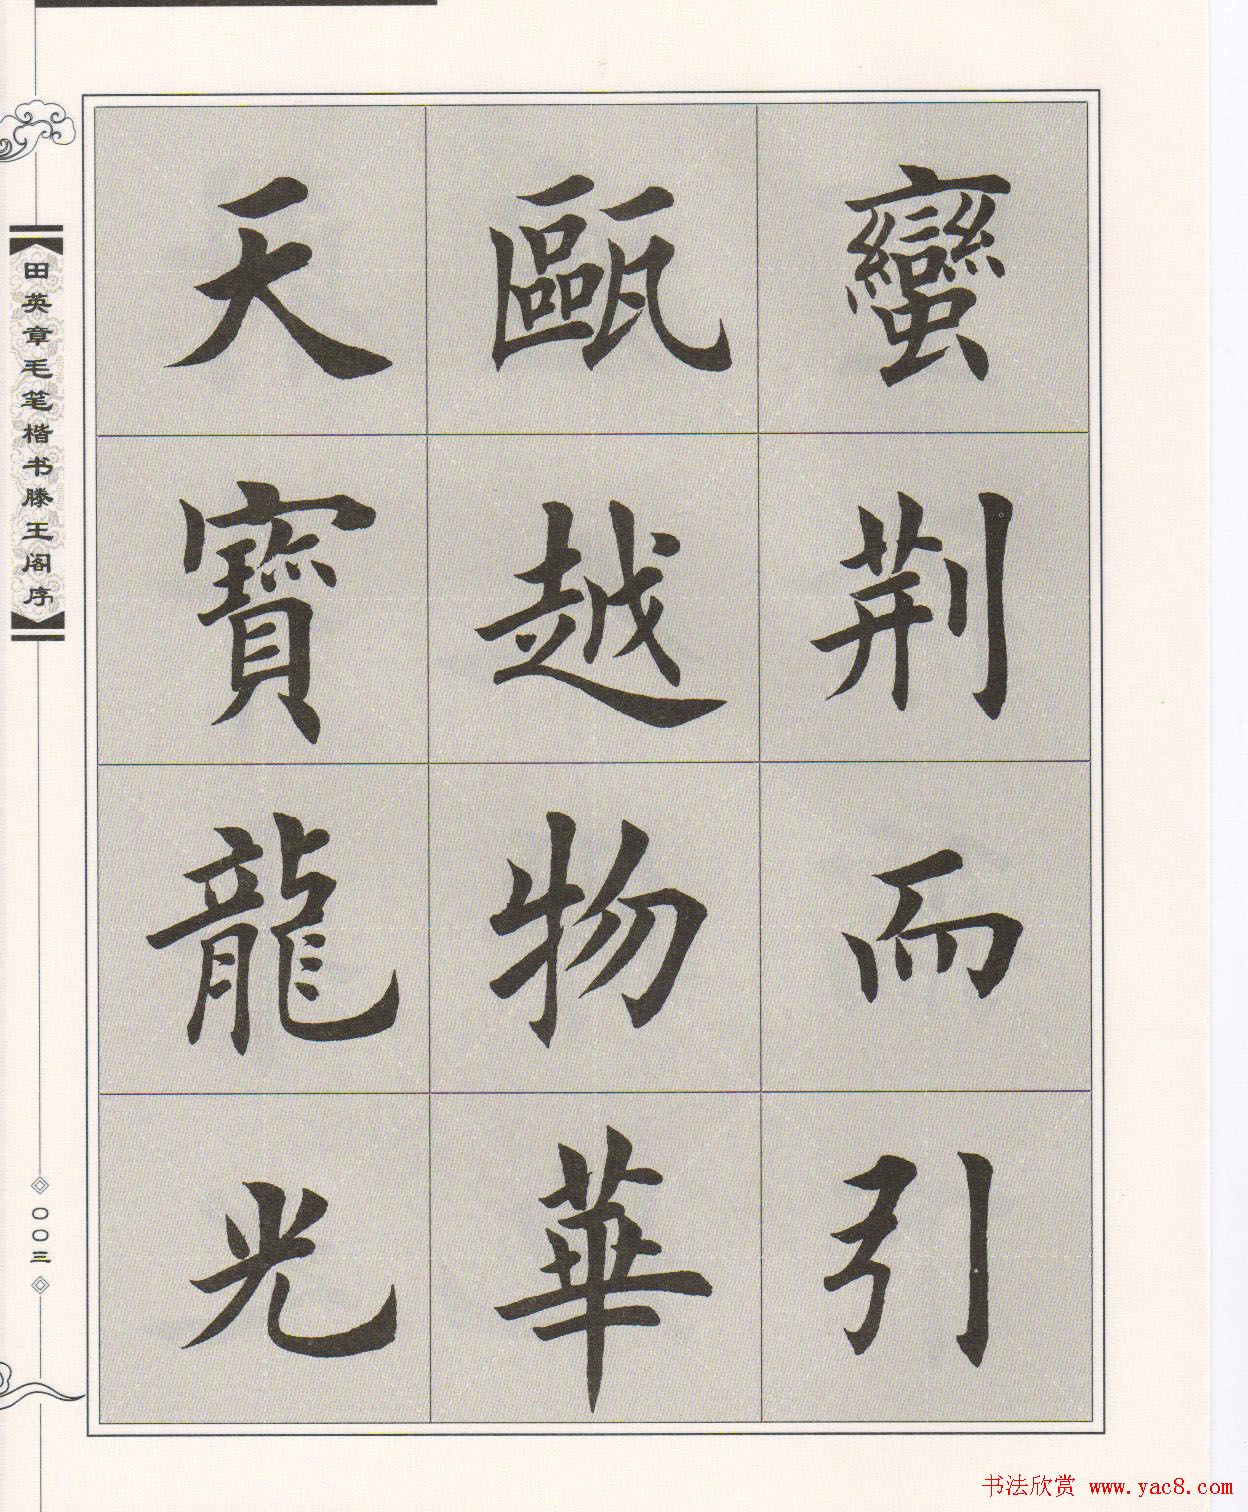 蠻荆而引
甌越物華
天寶龍光
田英章毛笔楷书滕王阁序
〇〇三
书法欣赏 www.yac8.com